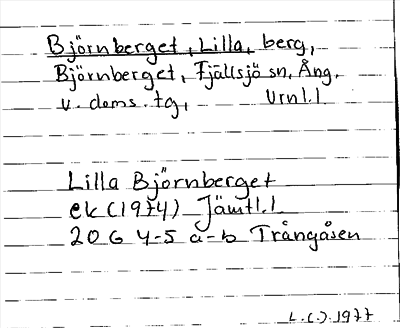 Björnberget, Lilla, berg,
Björnberget, Fjällsjö sn, Ång.
v. doms. tg, Vrnl.l
Lilla Björnberget
ek (1974) Jämtl.l
20 G 4-5 a-b Trångåsen
L.C.J. 1977